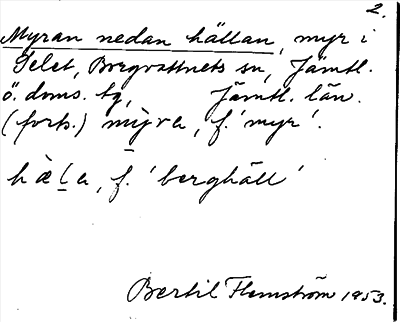 2.
Myran nedan hällan, myr i
Selet, Borgvattnets sn, Jämtl.
ö. doms. tg, Jämtl. län.
(forts.) mỳra, f. 'myr'.
hæ̀l̠a, f. 'berghäll'
Bertil Flemström 1953.